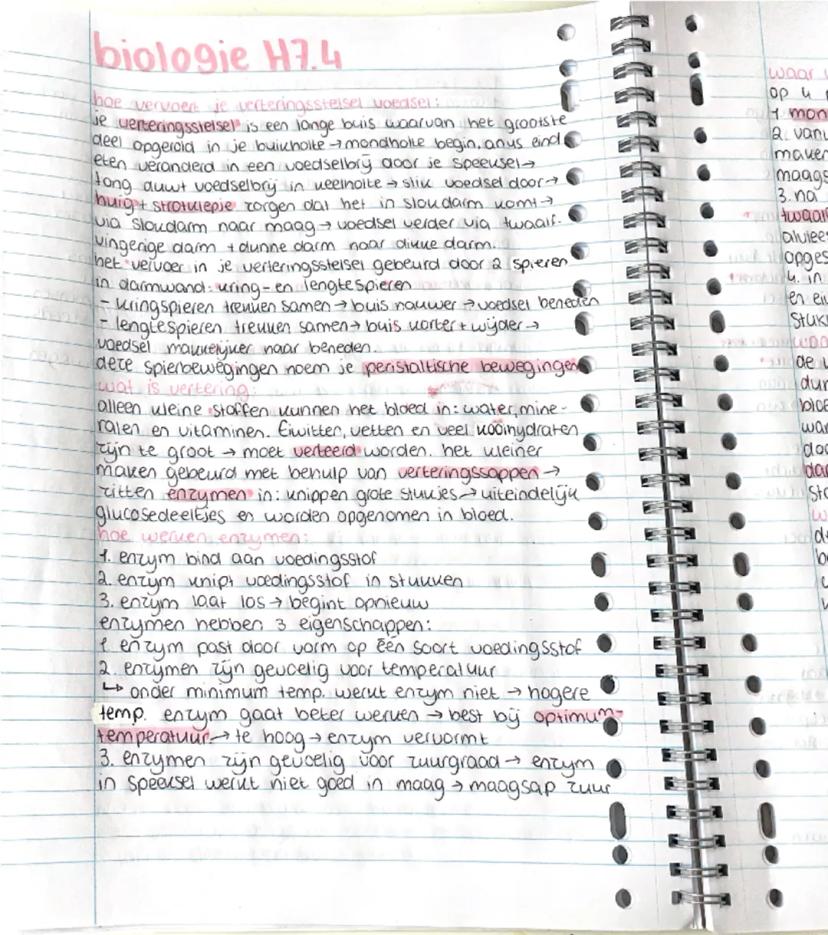 biologie H7.4
hoe vervoert je verteringsstelsel voedsel:
je verteringsstelsel is een lange buis waarvan het grootste
deel opgerold in je buikholte → mondholte begin, anus eind
eten veranderd in een voedselbrij door je speeksel →
tong duwt voedselbrij in keelholte → slik voedsel door →
huig + strotklepje zorgen dat het in slokdarm komt →
via slokdarm naar maag → voedsel verder via twaalf-
vingerige darm + dunne darm naar dikke darm.
het vervoer in je verteringsstelsel gebeurd door 2 spieren
in darmwand: kring- en lengtespieren
- kringspieren trekken samen → buis nauwer → voedsel beneden
- lengtespieren trekken samen → buis korter + wijder →
voedsel makkelijker naar beneden.
deze spierbewegingen noem je peristaltische bewegingen
wat is vertering:
alleen kleine stoffen kunnen het bloed in: water, mine-
ralen en vitaminen. Eiwitten, vetten en veel koolhydraten
zijn te groot → moet verteerd worden. het kleiner
maken gebeurd met behulp van verteringssappen →
zitten enzymen in: knippen grote stukjes → uiteindelijk
glucosedeeltjes en worden opgenomen in bloed.
hoe werken enzymen:
1. enzym bind aan voedingsstof
2. enzym knipt voedingsstof in stukken
3. enzym laat los → begint opnieuw
enzymen hebben 3 eigenschappen:
1. enzym past door vorm op één soort voedingsstof
2. enzymen zijn gevoelig voor temperatuur
↳ onder minimum temp. werkt enzym niet → hogere
temp. enzym gaat beter werken → best bij optimum-
temperatuur → te hoog → enzym vervormt
3. enzymen zijn gevoelig voor zuurgraad → enzym
in speeksel werkt niet goed in maag → maagsap zuur
waar
op u
1 mon
2. van
maken
maags
3. na
twaalf
alvlee
opges
4. in
en ei
stuk
de
dun
bloe
war
doo
dar